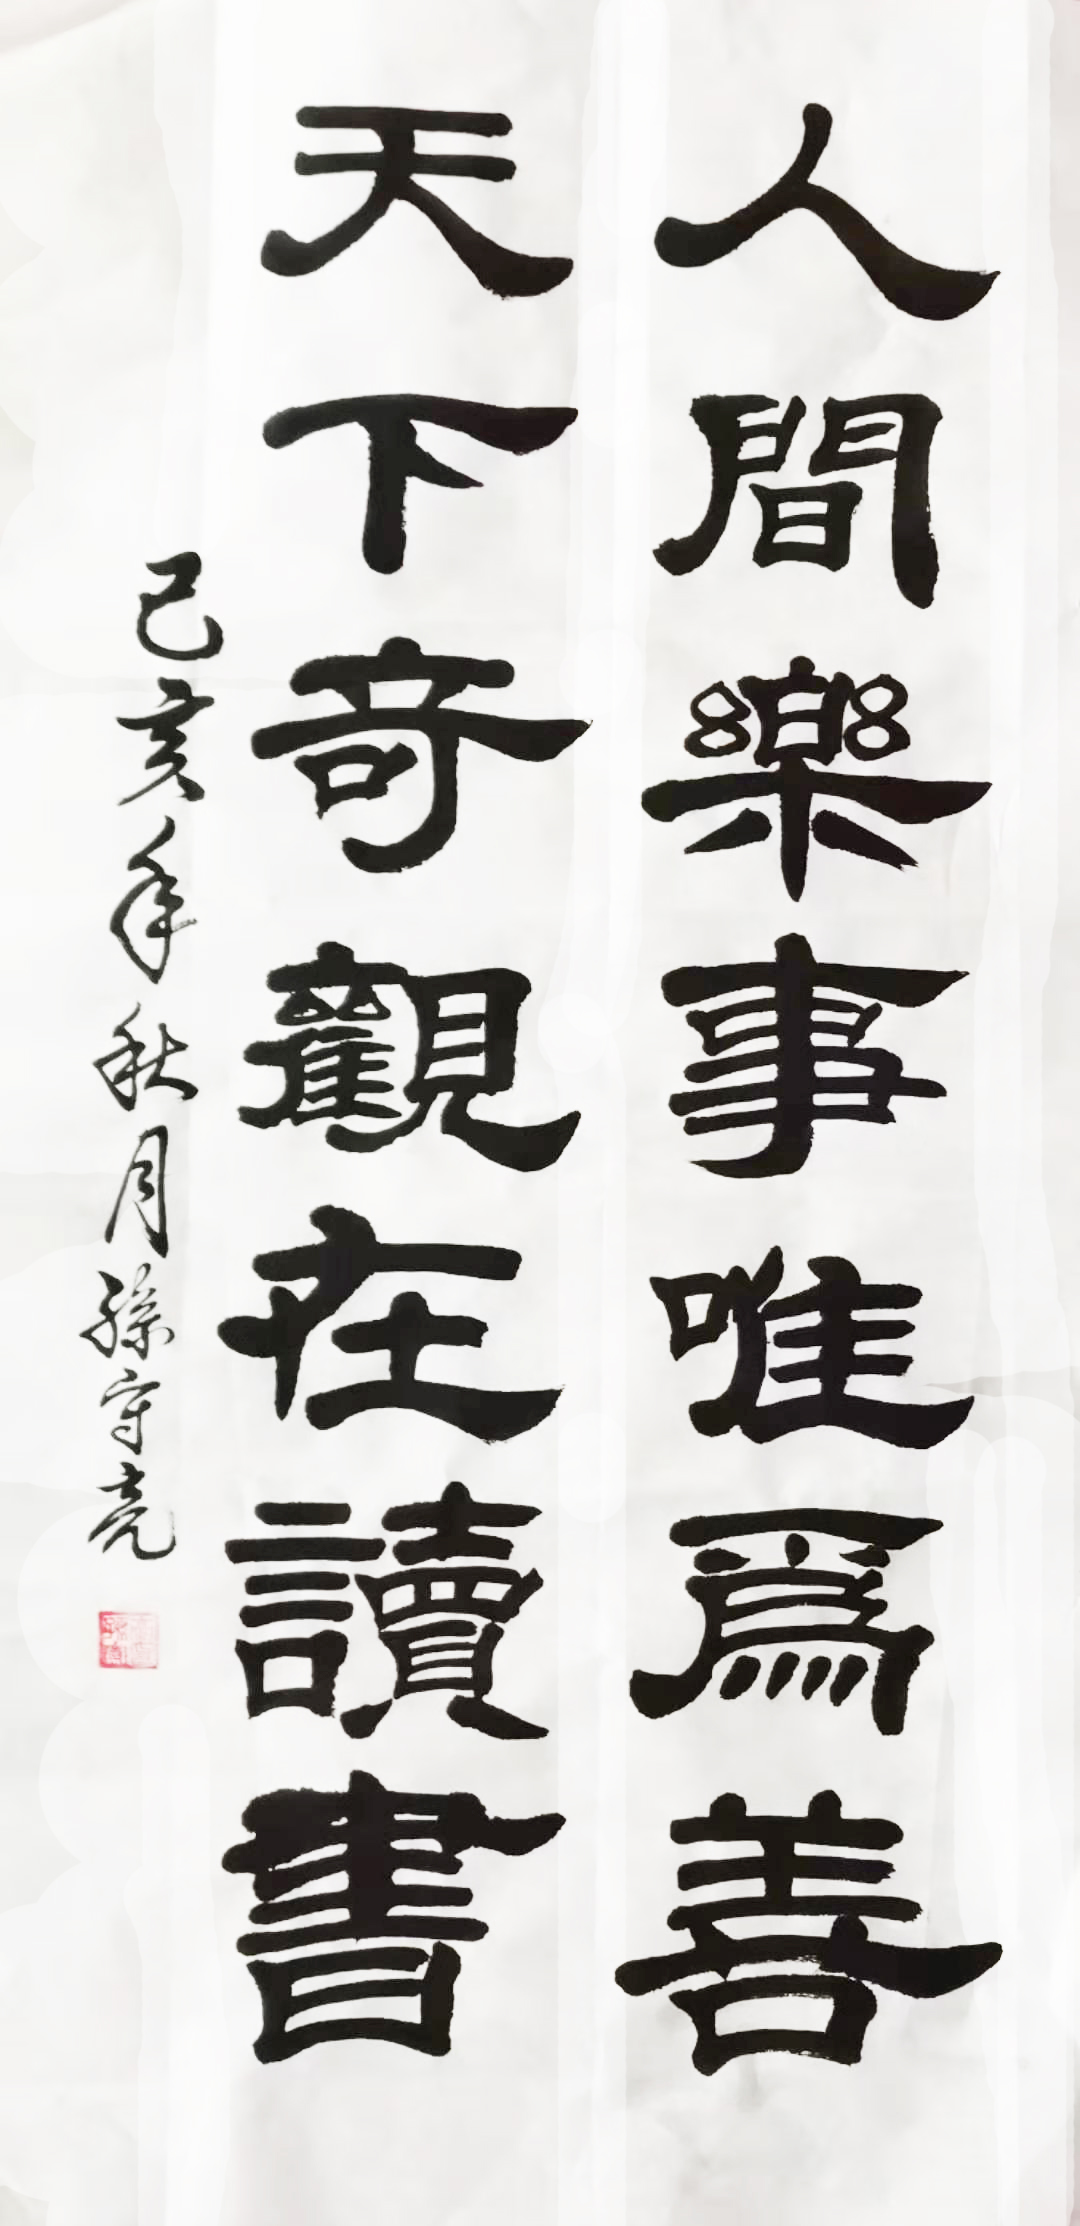 人間樂事唯爲善
天下奇觀在讀書
己亥年秋月孫守亮